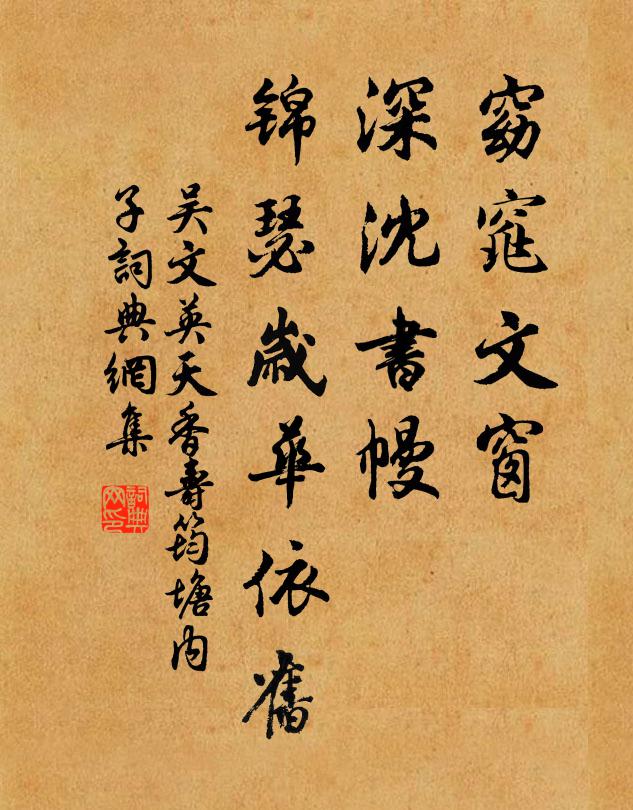 窈窕文窗
深沈書幔
锦瑟歲華依舊
吴文英天香壽筠塘内
子詞典網集
詞典
网印